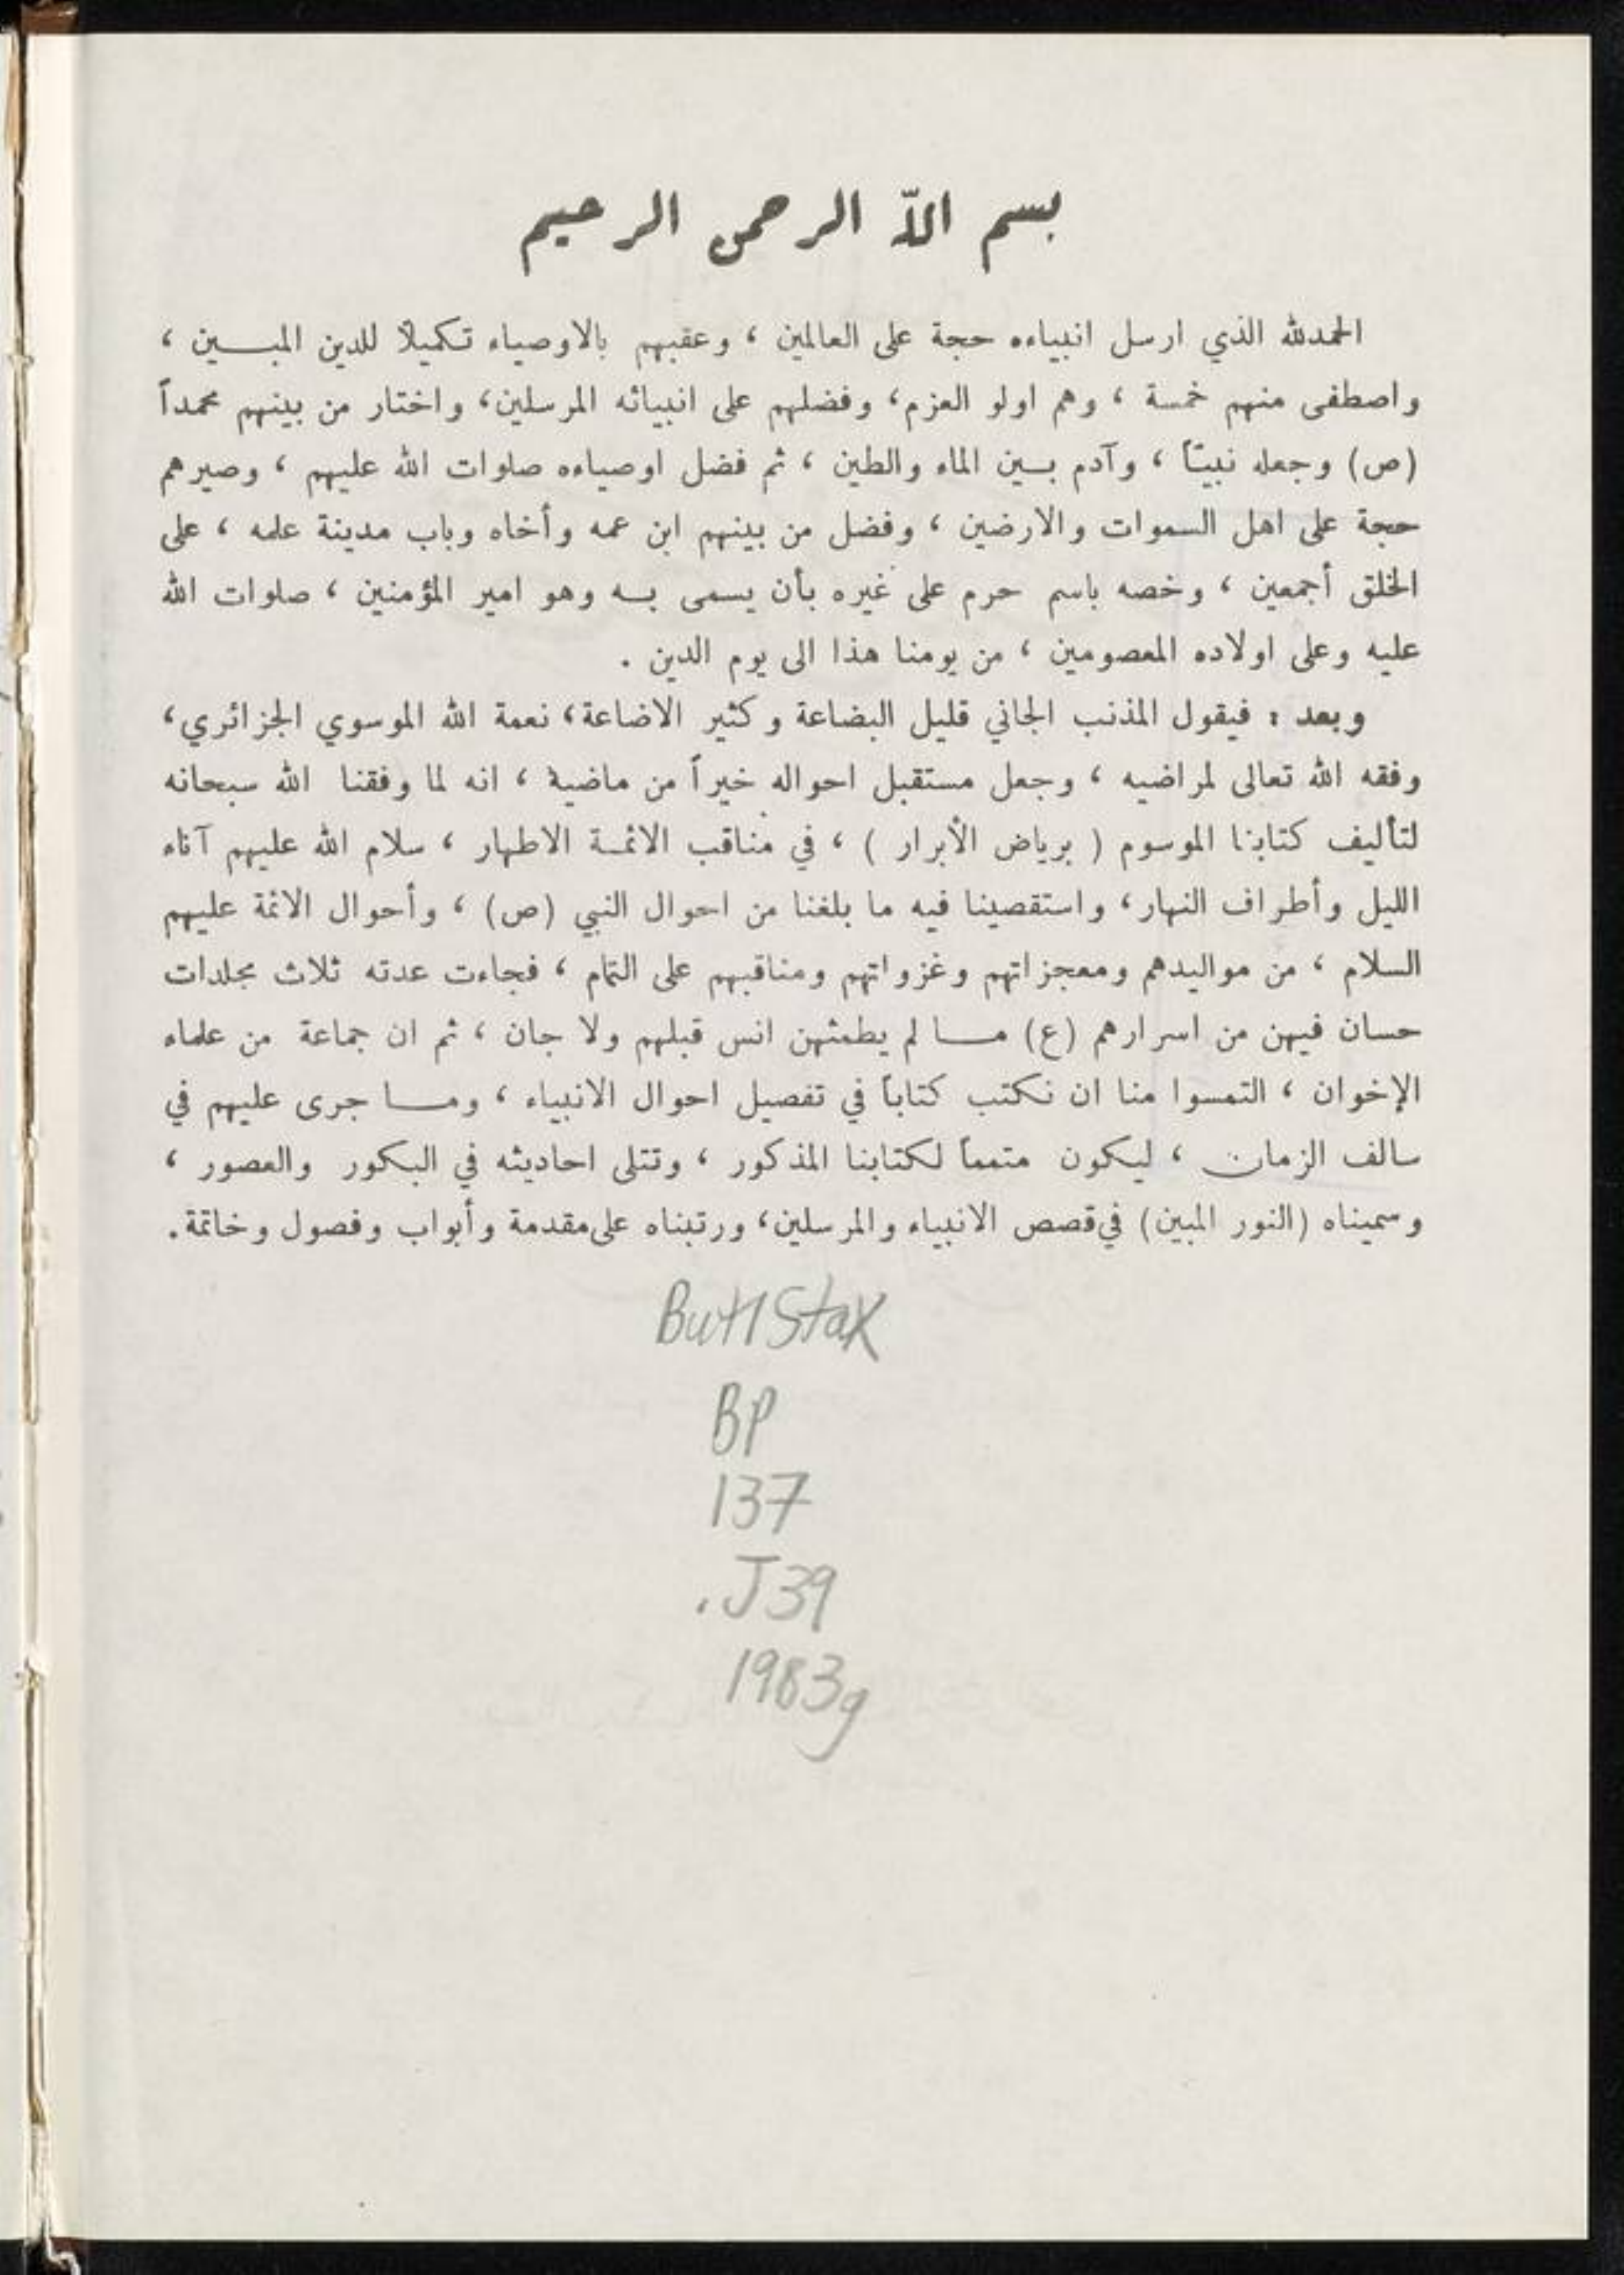 بسم اللّه الرحمن الرحيم
الحمدلله الذي ارسل انبياءه حجة على العالمين ، وعقبهم بالاوصياء تكميلاً للدين المبـــين ،
واصطفى منهم خمسة ، وهم اولو العزم، وفضلهم على انبيائه المرسلين، واختار من بينهم محمداً
(ص) وجعله نبيّاً ، وآدم بـين الماء والطين ، ثم فضل اوصياءه صلوات الله عليهم ، وصيرهم
حجة على اهل السموات والارضين ، وفضل من بينهم ابن عمه وأخاه وباب مدينة علمه ، على
الخلق أجمعين ، وخصه باسم حرم على غيره بأن يسمى بـه وهو امير المؤمنين ، صلوات الله
عليه وعلى اولاده المعصومين ، من يومنا هذا الى يوم الدين .
وبعد : فيقول المذنب الجاني قليل البضاعة وكثير الاضاعة، نعمة الله الموسوي الجزائري،
وفقه الله تعالى لمراضيه ، وجعل مستقبل احواله خيراً من ماضية ، انه لما وفقنا الله سبحانه
لتأليف كتابنا الموسوم ( برياض الأبرار ) ، في مناقب الائمـة الاطهار ، سلام الله عليهم آناء
الليل وأطراف النهار، واستقصينا فيه ما بلغنا من احوال النبي (ص) ، وأحوال الائمة عليهم
السلام ، من مواليدهم ومعجزاتهم وغزواتهم ومناقبهم على التمام ، فجاءت عدته ثلاث مجلدات
حسان فيهن من اسرارهم (ع) مـــا لم يطمثهن انس قبلهم ولا جان ، ثم ان جماعة من علماء
الإخوان ، التمسوا منا ان نكتب كتاباً في تفصيل احوال الانبياء ، ومـــا جرى عليهم في
سالف الزمان ، ليكون متمماً لكتابنا المذكور ، وتتلى احاديثه في البكور والعصور ،
وسميناه (النور المبين) في قصص الانبياء والمرسلين، ورتبناه على مقدمة وأبواب وفصول وخاتمة.
ButlStax
BP
137
.J39
1983g